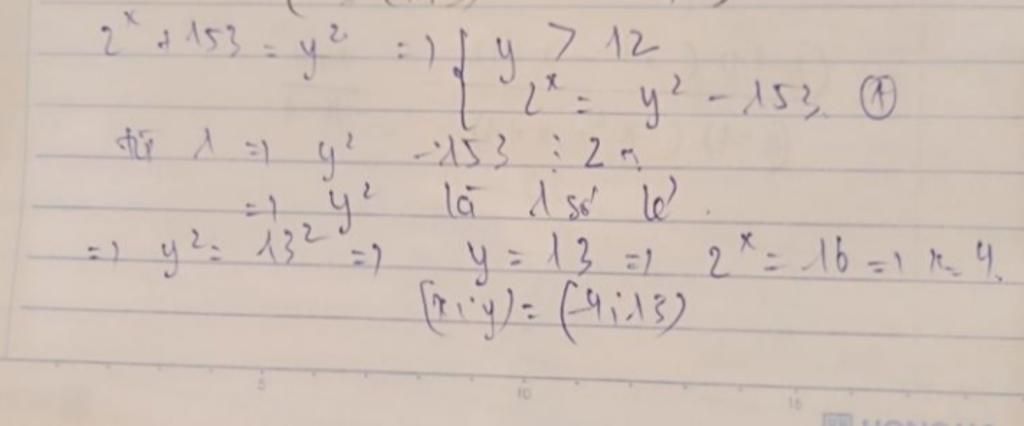 2^x + 153 = y² => { y > 12
2^x = y² - 153 ①
từ 1 => y² - 153 ⋮ 2
=> y² là 1 số lẻ.
=> y² = 13² => y = 13 => 2^x = 16 => x = 4.
(x; y) = (4; 13)
5 10 15